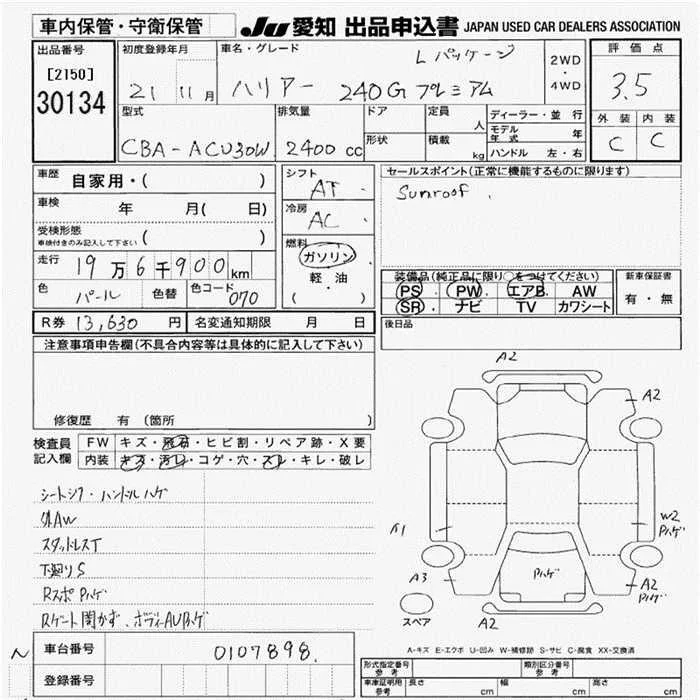 車内保管・守衛保管
JU 愛知 出品申込書 JAPAN USED CAR DEALERS ASSOCIATION
出品番号
[2150]
30134
初度登録年月
21 11月
車名・グレード
Lパッケージ
ハリアー 240G プレミアム
2WD
・
4WD
評価点
3.5
外装 内装
C C
型式
CBA-ACU30W
排気量
2400 cc
ドア
形状
定員
人
積載
kg
ディーラー・並行
モデル年式 年
ハンドル 左・右
車歴
自家用・( )
車検
年 月( 日)
受検形態
車検付きのみ記入して下さい ( )
走行
19万6千900km
色
パール
色替
色コード
070
シフト
AT
冷房
AC
燃料
ガソリン
軽・油
( )
セールスポイント(正常に機能するものに限ります)
Sunroof
装備品(純正品に限り○をつけてください)
PS PW エアB AW
SR ナビ TV カワシート
新車保証書
有・無
後日品
R券 13,630 円
名変通知期限 月 日
注意事項申告欄(不具合内容等は具体的に記入して下さい)
修復歴 有 (箇所 )
検査員記入欄
FW キズ・飛石・ヒビ割・リペア跡・X要
内装 キズ・汚レ・コゲ・穴・スレ・キレ・破レ
シートシワ・ハンドルハゲ
外AW
スタッドレスT
下廻りS
RスポPハゲ
Rゲート開かず、ボディーAUPハゲ
A2
A2
A1
W2
Pハゲ
A3
Pハゲ
A2
Pハゲ
スペア
A2
A-キズ E-エクボ U-凹み W-補修跡 S-サビ C-腐食 XX-交換済
N
車台番号
0107898
登録番号
形式指定番号 参考
類別区分番号
車庫証明用 参考
長さ cm
幅 cm
高さ cm